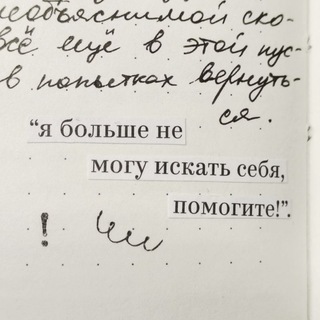 необъяснимой ско-
всё ещё в этой пус-
в попытках вернуть-
ся.
“я больше не
могу искать себя,
помогите!”.
!